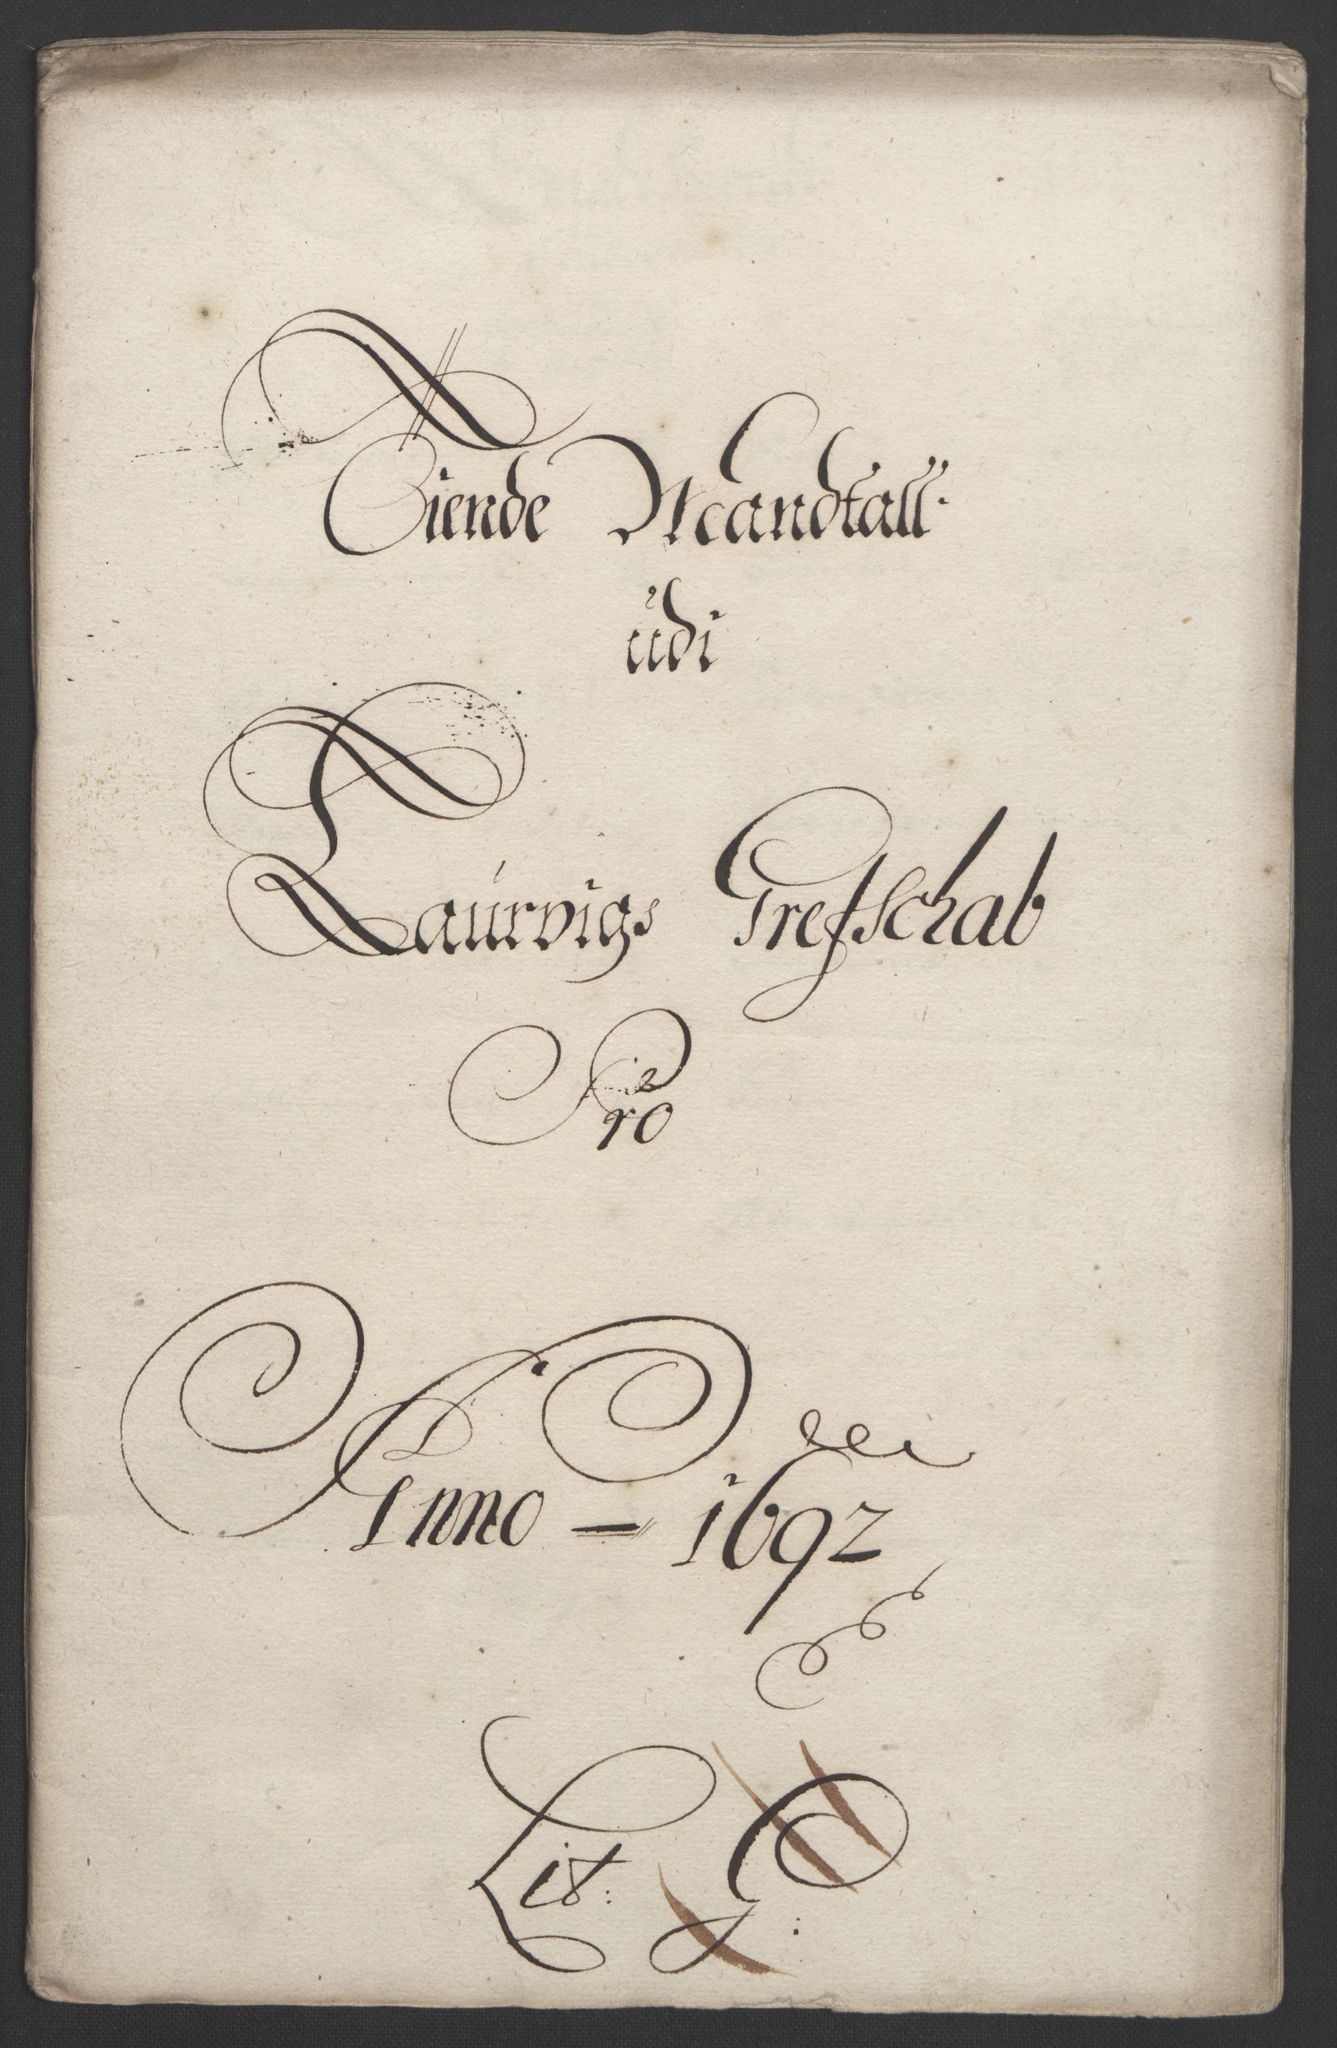 Tiende Mandtall
udi
Laurvigs Grefschab
Pro
Anno - 1692
Lit: G: